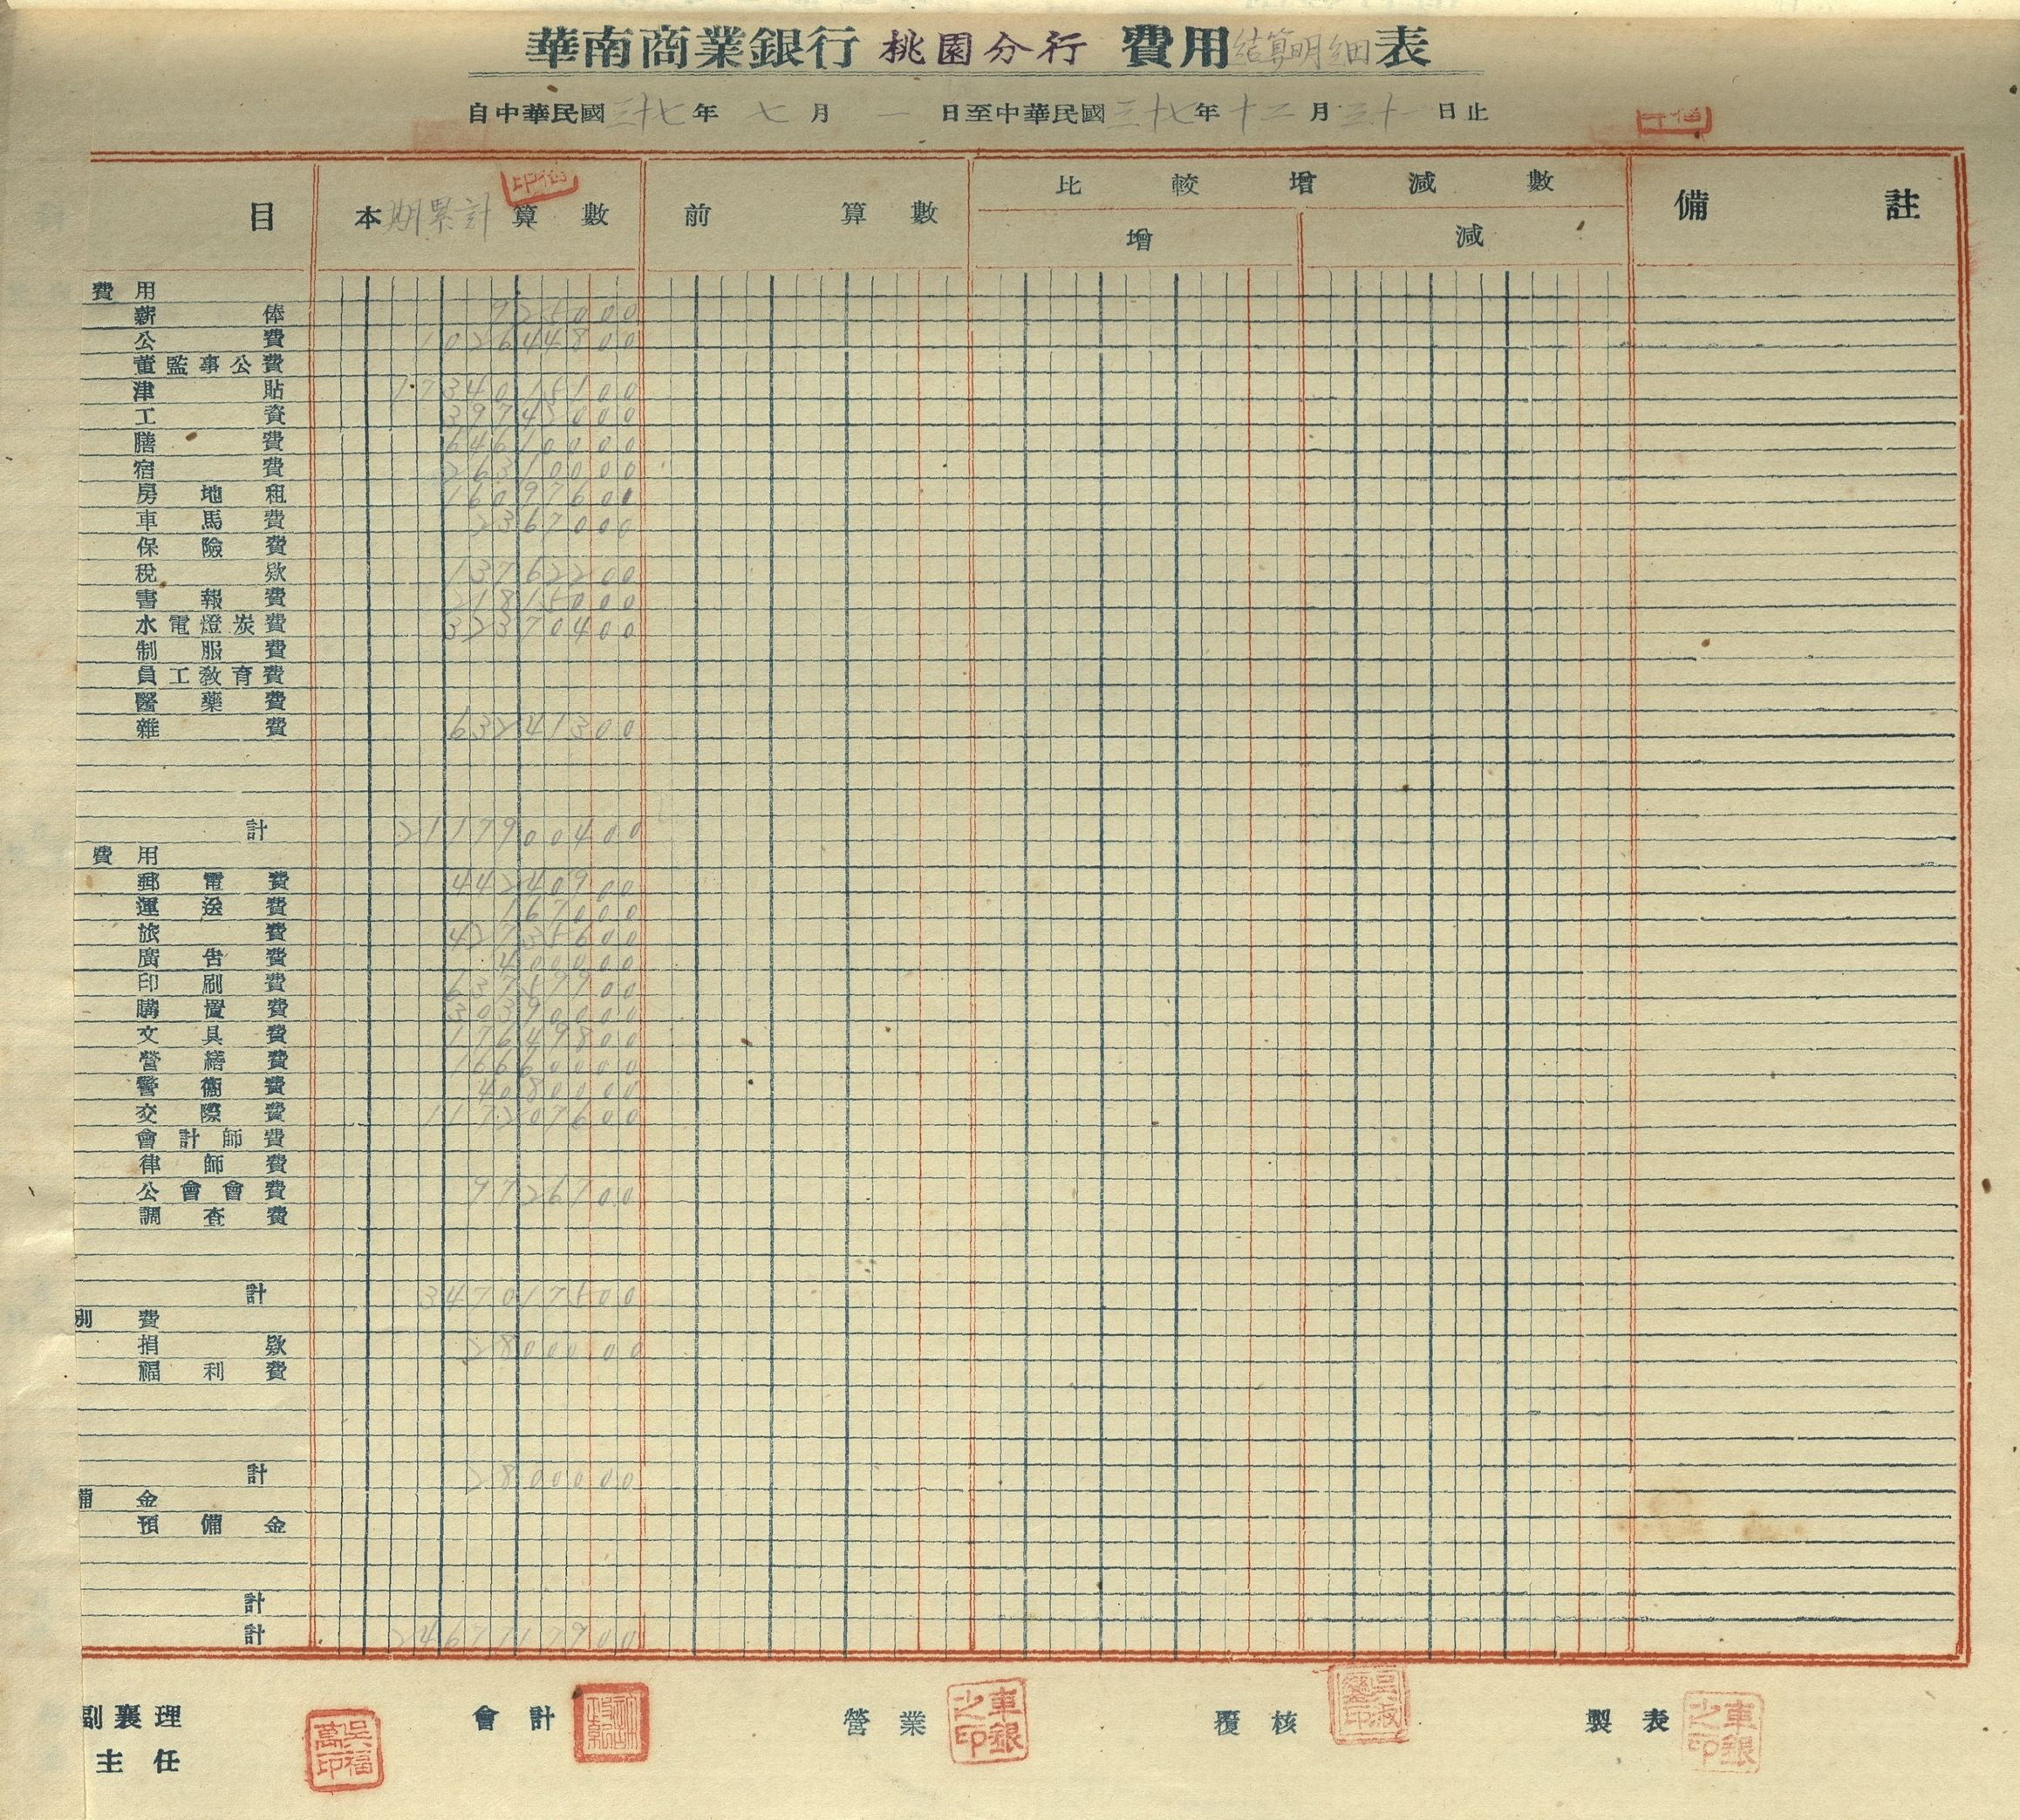 華南商業銀行 桃園分行 費用結算明細表
自中華民國三十七年七月一日至中華民國三十七年十二月三十一日止
目 本期累計算數 前算數 比較增減數 備註
增 減
費用
薪俸 9250 00
公費 1026448 00
董監事公費
津貼 17340151 00
工資 397420 00
膳費 646100 00
宿費 263100 00
房地租 160976 00
車馬費 23670 00
保險費
稅款 137622 00
書報費 218150 00
水電燈炭費 323704 00
制服費
員工教育費
醫藥費
雜費 632413 00
計 21179004 00
費用
郵電費 442409 00
運送費 1670 00
旅費 427356 00
廣告費 4000 00
印刷費 637599 00
購置費 303900 00
文具費 176498 00
營繕費 166600 00
警衛費 40800 00
交際費 1172076 00
會計師費
律師費
公會會費 97267 00
調查費
計 3470175 00
別費
捐款 28000 00
福利費
計 28000 00
備金
預備金
計
計 24677179 00
副襄理 會計 營業 覆核 製表
主任
吳福萬印
車銀之印
車銀之印